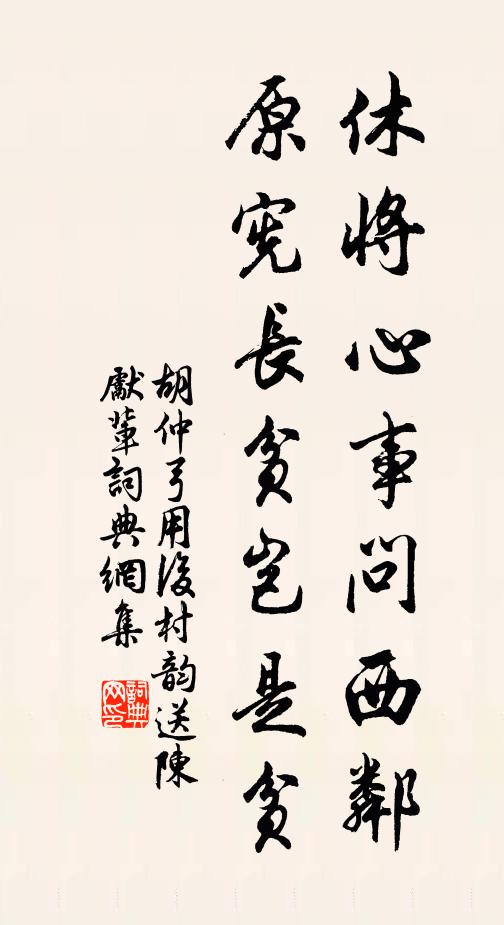 休將心事問西鄰
原憲長貧豈是貧
胡仲弓用後村韵送陳
獻輩詞典網集
詞典網印